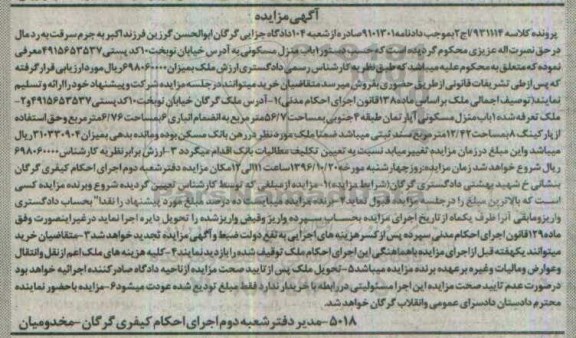 آگهی مزایده
پرونده کلاسه ۷۹۳۱۱۱۴ج۲ بموجب دادنامه ۹۱۰۱۳۰۱ صادره از شعبه ۱۰۴ دادگاه جزایی گرگان ابوالحسن گرزین فرزند اکبر به جرم سرقت به رد مال
در حق نصرت اله عزیزی محکوم گردیده است که حسب دستور ۱ باب منزل مسکونی به آدرس خیابان نوبخت ۱۰ کد پستی ۴۹۱۵۶۵۳۵۳۷ معرفی
نموده که متعلق به محکوم علیه میباشد که طبق نظر به کارشناس رسمی دادگستری ارزش ملک بمیزان ۶۹۸۰۶۰۰۰۰ ریال مورد ارزیابی قرار گرفته
که پس از طی تشریفات قانونی از طریق حضوری بفروش میرسد متقاضیان خرید میتوانند در جلسه مزایده شرکت و پیشنهاد خود را ارائه و تسلیم
نمایند (توصیف اجمالی ملک بر اساس ماده ۱۳۸ قانون اجرای احکام مدنی) ۱- آدرس ملک گرگان خیابان نوبخت ۱۰ کد پستی ۴۹۱۵۶۵۳۵۳۷ و ۲-
ملک تعرفه شده ۱ باب منزل مسکونی آپارتمان طبقه ۴ جنوبی بمساحت ۵۶/۷ متر مربع به انضمام انباری ۶ بمساحت ۶/۷۶ متر مربع و حق استفاده
از پارکینگ ۸ بمساحت ۱۲/۴۲ متر مربع سند ثبتی میباشد ضمنا ملک مورد نظر در رهن بانک مسکن بوده و مانده بدهی بمیزان ۳۱۰۳۳۰۹۰۴ ریال
میباشد و این مبلغ در زمان مزایده تغییر میابد نسبت به تعیین تکلیف مطالبات بانک اقدام میگردد ۳- ارزش برابر نظر به کارشناس ۶۹۸۰۶۰۰۰۰
ریال شروع خواهد شد زمان مزایده: روز چهارشنبه مورخه ۱۳۹۶/۱۰/۲۰ ساعت ۱۱ الی ۱۲ مکان مزایده دفتر شعبه دوم اجرای احکام کیفری گرگان
بنشانی خ شهید بهشتی دادگستری گرگان (شرایط مزایده) ۱- مزایده از مبلغی که توسط کارشناس تعیین گردیده شروع و برنده مزایده کسی
است که بالاترین مبلغ را در جلسه مزایده قبول نماید ۲- برنده مزایده میبایست ده درصد مبلغ مورد پیشنهاد را نقدا" بحساب دادگستری
واریز و مابقی آنرا ظرف یکماه از تاریخ اجرای مزایده بحساب سپرده واریز و فیض واریز شده را تحویل دایره اجرا نماید در غیر اینصورت وفق
ماده ۱۲۹ قانون اجرای احکام مدنی سپرده پس از کسر هزینه های اجرایی به نفع دولت ضبط و آگهی مزایده تجدید خواهد شد ۳- متقاضیان خرید
میتوانند یکهفته قبل از اجرای مزایده با هماهنگی این اجرای احکام ملک توقیف شده را بازدید نمایند ۴- کلیه هزینه های ملک اعم از نقل و انتقال
و عوارض و مالیات و غیره بر عهده برنده مزایده میباشد ۵- تحویل ملک پس از تایید صحت مزایده از ناحیه دادگاه صادر کننده اجرائیه خواهد بود
در صورت عدم تایید صحت مزایده این اجرا مسئولیتی در رابطه با خریدار ندارد فقط مبلغ تودیع شده عودت میشود ۶- مزایده با حضور نماینده
محترم دادستان دادسرای عمومی و انقلاب گرگان خواهد شد.
۵۰۱۸- مدیر دفتر شعبه دوم اجرای احکام کیفری گرگان - مخدومیان